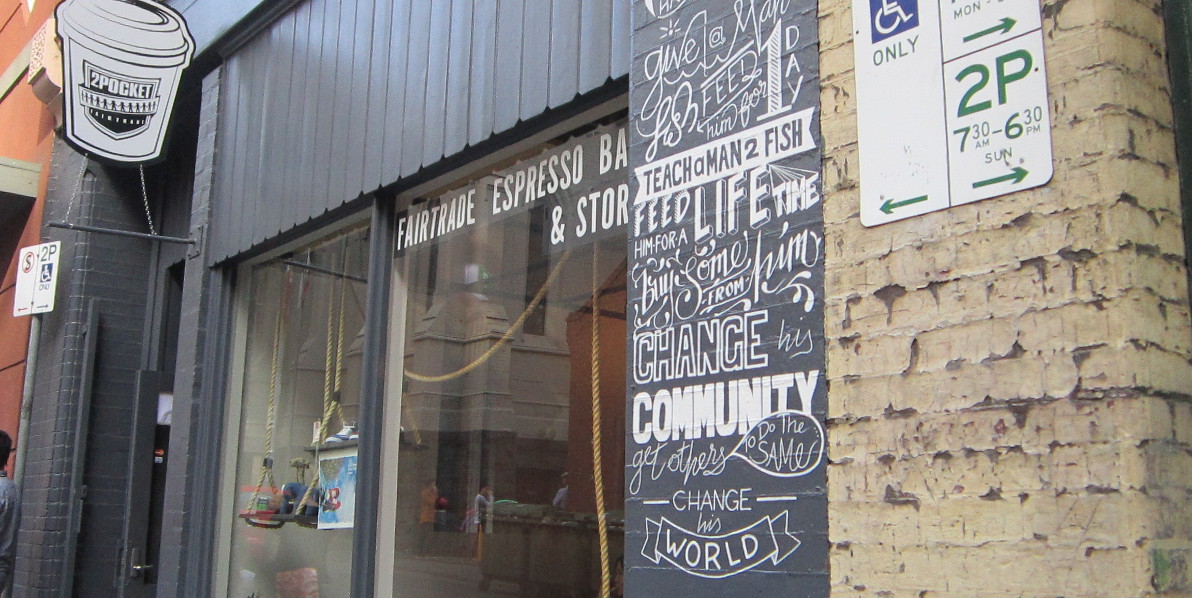 2POCKET
FAIRTRADE
2P
ONLY
FAIRTRADE ESPRESSO BA
& STOR
give a Man
a fish FEED
him for 1 DAY
TEACH a MAN 2 FISH
FEED
HIM·FOR·A
LIFE TIME
Buy Some
FROM him
CHANGE his
COMMUNITY
get others to Do The
SAME
CHANGE
his
WORLD
ONLY
MON -
2P
730 AM - 630 PM
SUN